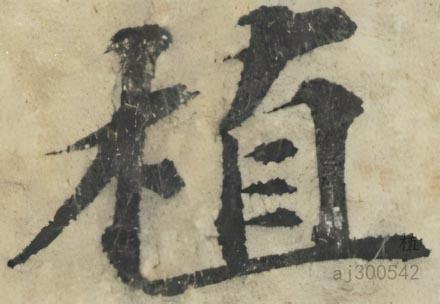 植
植
aj300542